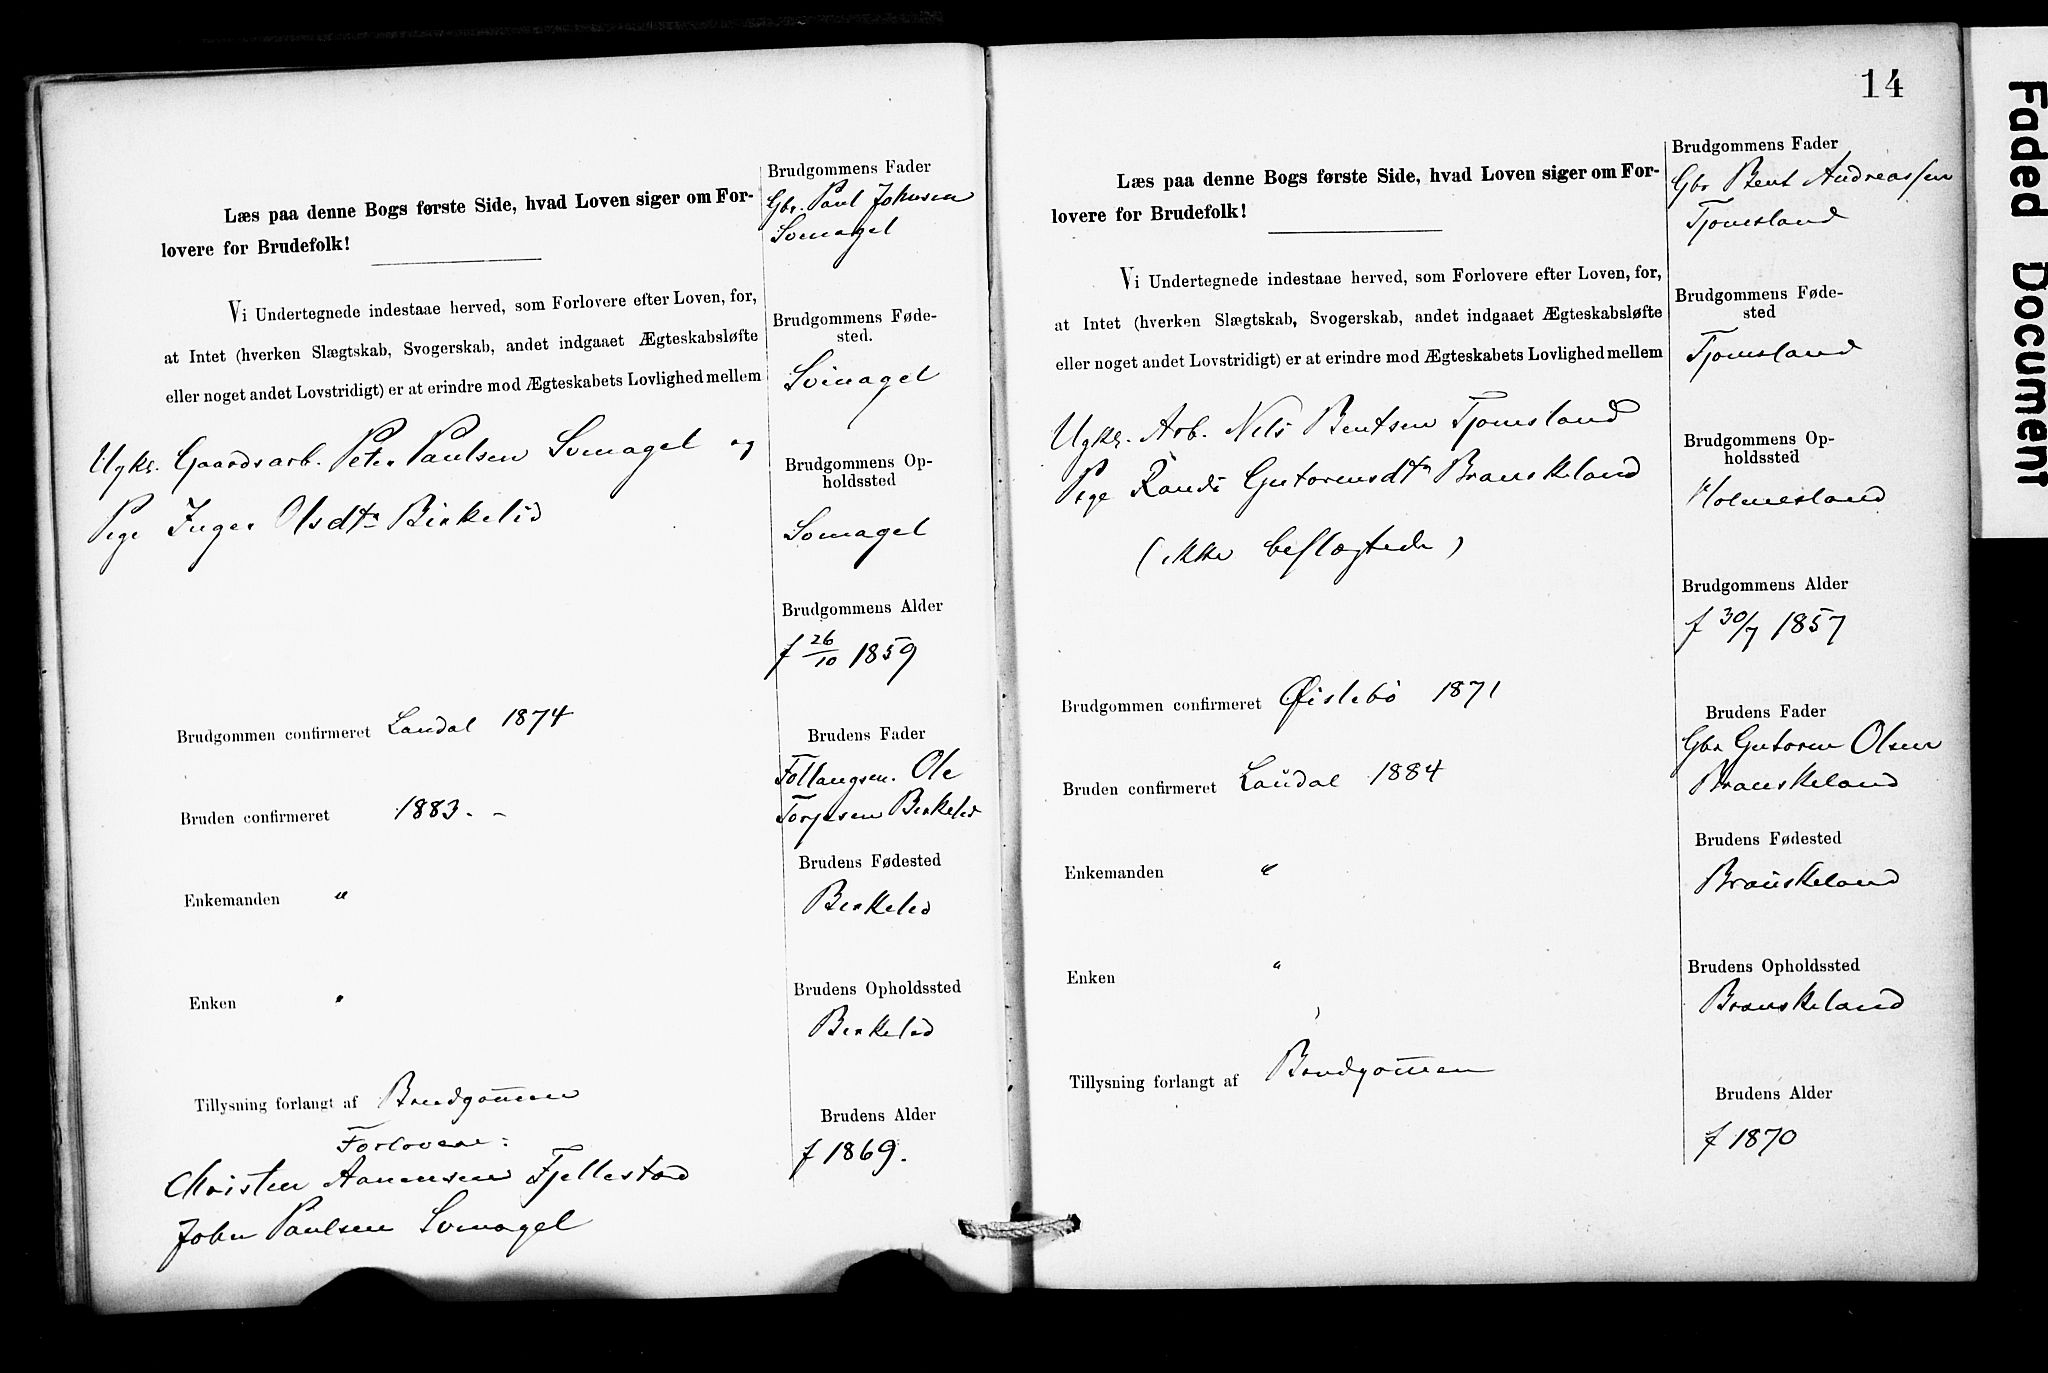 Læs paa denne Bogs første Side, hvad Loven siger om For-
lovere for Brudefolk!
Vi Undertegnede indestaae herved, som Forlovere efter Loven, for,
at Intet (hverken Slægtskab, Svogerskab, andet indgaaet Ægteskabsløfte
eller noget andet Lovstridigt) er at erindre mod Ægteskabets Lovlighed mellem
Ugkl. Gaardsarb. Peter Paulsen Svinagel og
Pige Inger Olsdtr Birkelid
Brudgommen confirmeret Laudal 1874
Bruden confirmeret 1883. -
Enkemanden "
Enken "
Tillysning forlangt af Brudgommen
Forlovere:
Christen Aanensen Fjellestad
John Paulsen Svinagel
Brudgommens Fader
Gbr. Paul Johnsen
Svinagel
Brudgommens Føde-
sted.
Svinagel
Brudgommens Op-
holdssted
Svinagel
Brudgommens Alder
f 26/10 1859
Brudens Fader
Ole
Torjesen Birkelid
Brudens Fødested
Birkelid
Brudens Opholdssted
Birkelid
Brudens Alder
f 1869.
14
Læs paa denne Bogs første Side, hvad Loven siger om For-
lovere for Brudefolk!
Vi Undertegnede indestaae herved, som Forlovere efter Loven, for,
at Intet (hverken Slægtskab, Svogerskab, andet indgaaet Ægteskabsløfte
eller noget andet Lovstridigt) er at erindre mod Ægteskabets Lovlighed mellem
Ugkl. Arb. Nils Bentsen Tjomsland
Pige Randi Gutormsdtr Brauskeland
(ikke beslægtede)
Brudgommen confirmeret Øislebö 1871
Bruden confirmeret Laudal 1884
Enkemanden "
Enken "
Tillysning forlangt af Brudgommen
Brudgommens Fader
Gbr Bent Andreassen
Tjomsland
Brudgommens Føde-
sted
Tjomsland
Brudgommens Op-
holdssted
Holmesland
Brudgommens Alder
f 30/7 1857
Brudens Fader
Gbr Gutorm Olsen
Brauskeland
Brudens Fødested
Brauskeland
Brudens Opholdssted
Brauskeland
Brudens Alder
f 1870
Faded Document